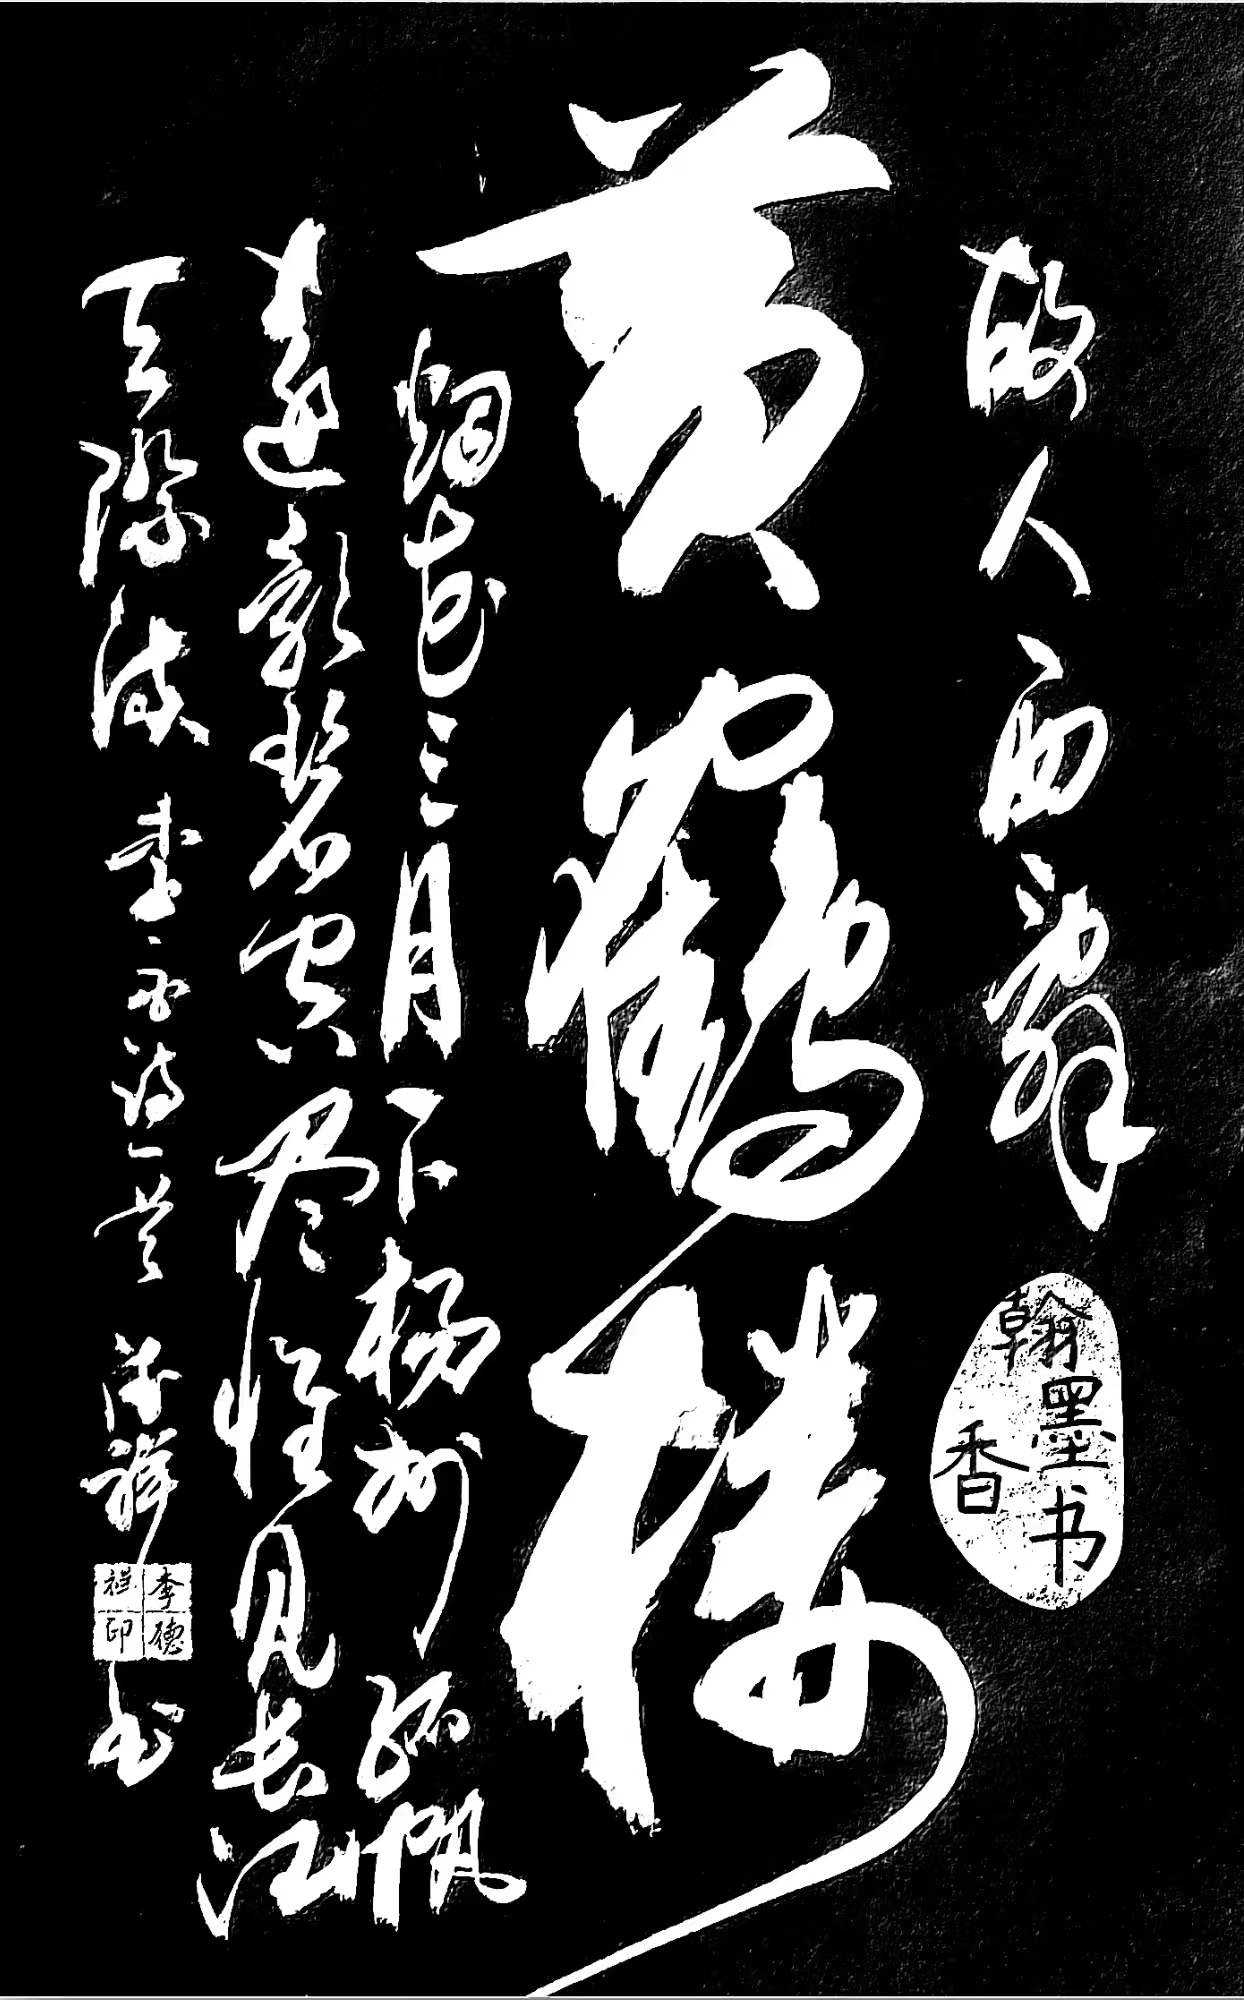 故人西辞
翰墨书香
黄鹤楼
烟花三月下杨州孤帆
远影碧空尽惟见长江
天际流 李白诗一首 德祥书
李德祥印